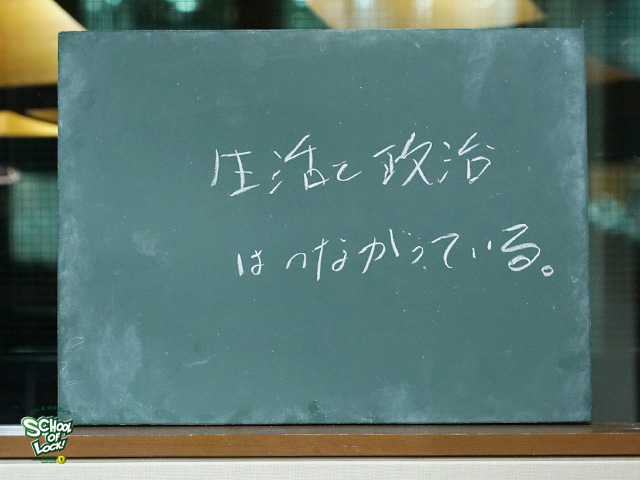 生活と政治
はつながっている。
SCHOOL
OF
LOCK!